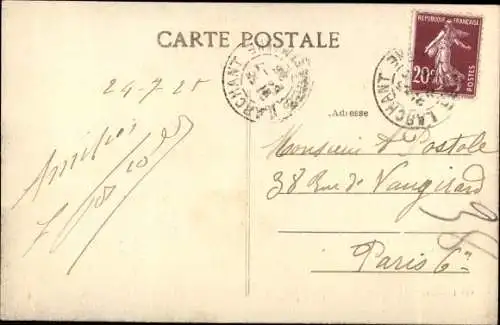 CARTE POSTALE
REPUBLIQUE FRANÇAISE
20c
POSTES
LARCHANT
LARCHANT
24-7-25
Adresse
Amitiés
Monsieur Postole
38 Rue de Vaugirard
Paris 6e